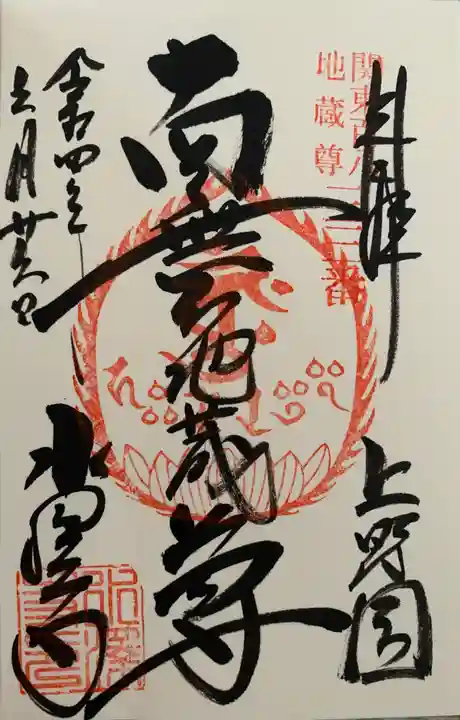 関東百八
地蔵尊一三番
奉拝
上野国
南無地蔵尊
水澤寺
令和四年
六月廿六日